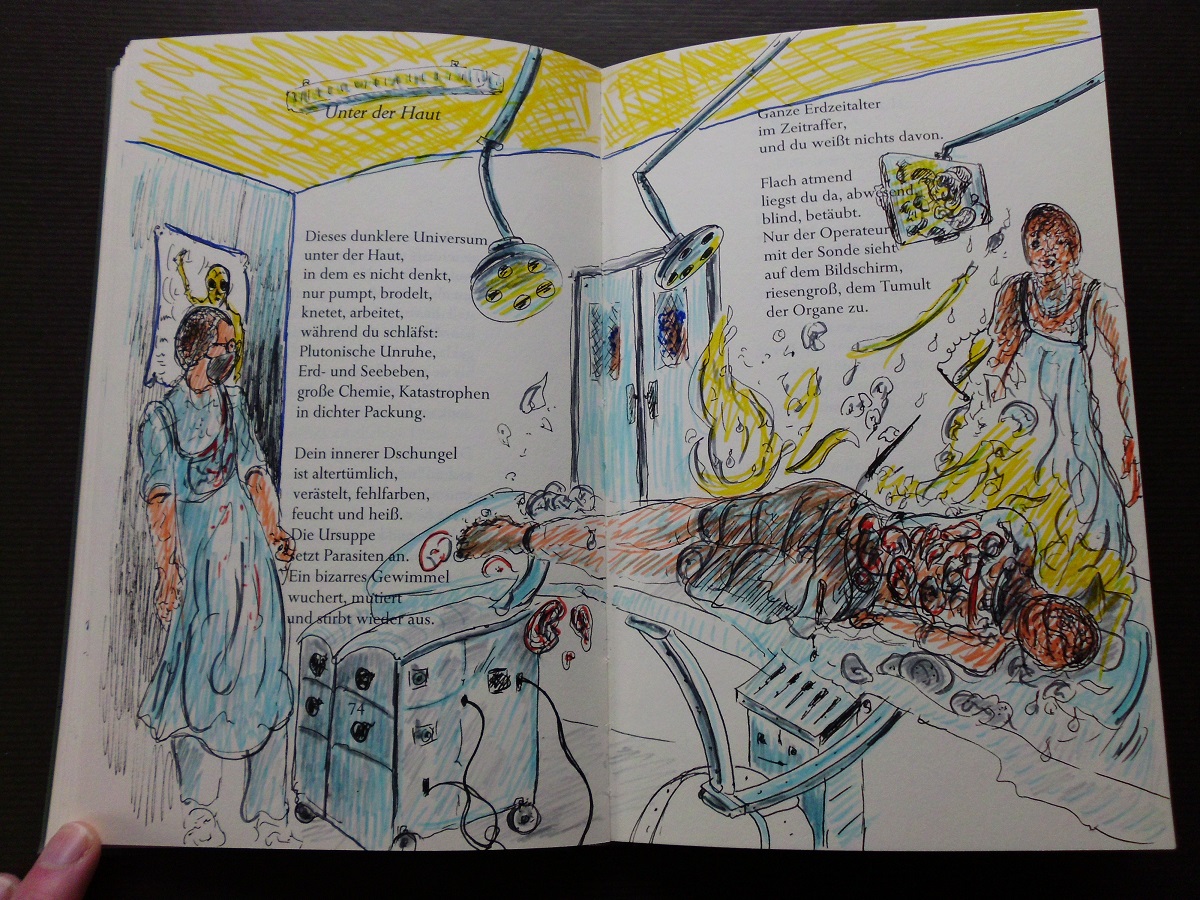 Unter der Haut
Dieses dunklere Universum
unter der Haut,
in dem es nicht denkt,
nur pumpt, brodelt,
knetet, arbeitet,
während du schläfst:
Plutonische Unruhe,
Erd- und Seebeben,
große Chemie, Katastrophen
in dichter Packung.
Dein innerer Dschungel
ist altertümlich,
verästelt, fehlfarben,
feucht und heiß.
Die Ursuppe
setzt Parasiten an.
Ein bizarres Gewimmel
wuchert, mutiert
und stirbt wieder aus.
74
Ganze Erdzeitalter
im Zeitraffer,
und du weißt nichts davon.
Flach atmend
liegst du da, abwesend,
blind, betäubt.
Nur der Operateur
mit der Sonde sieht
auf dem Bildschirm,
riesengroß, dem Tumult
der Organe zu.